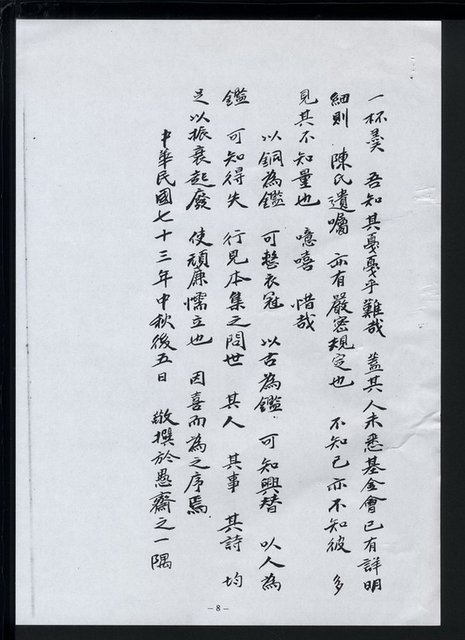 一杯羹　吾知其戛戛乎難哉　蓋其人未悉基金會已有詳明
細則　陳氏遺囑　亦有嚴密規定也　不知己亦不知彼　多
見其不知量也　噫嘻　惜哉
以銅為鑑　可整衣冠　以古為鑑　可知興替　以人為
鑑　可知得失　行見本集之問世　其人　其事　其詩　均
足以振衰起廢　使頑廉懦立也　因喜而為之序焉
中華民國七十三年中秋後五日　敬撰於愚齋之一隅
－8－